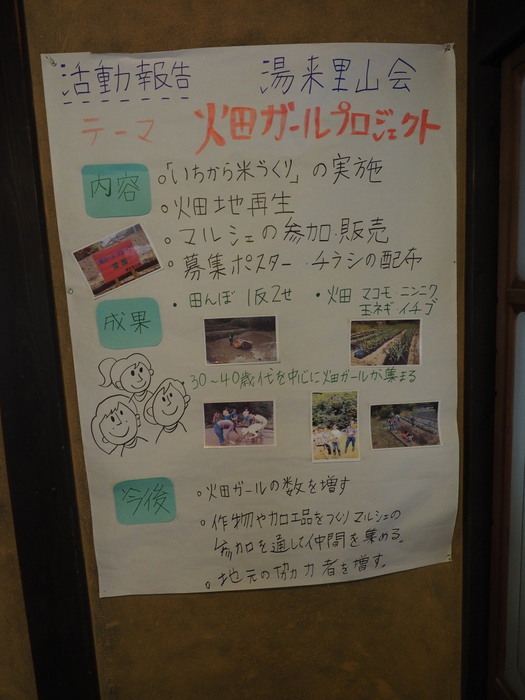 活動報告 湯来里山会
テーマ 畑ガールプロジェクト
内容
○「いちから米づくり」の実施
○畑地再生
○マルシェの参加・販売
○募集ポスター・チラシの配布
成果
・田んぼ 1反2せ ・畑 マコモ ニンニク
玉ネギ イチゴ
30〜40歳代を中心に畑ガールが集まる
今後
○畑ガールの数を増す
○作物や加工品をつくりマルシェの
参加を通して仲間を集める。
○地元の協力者を増す。